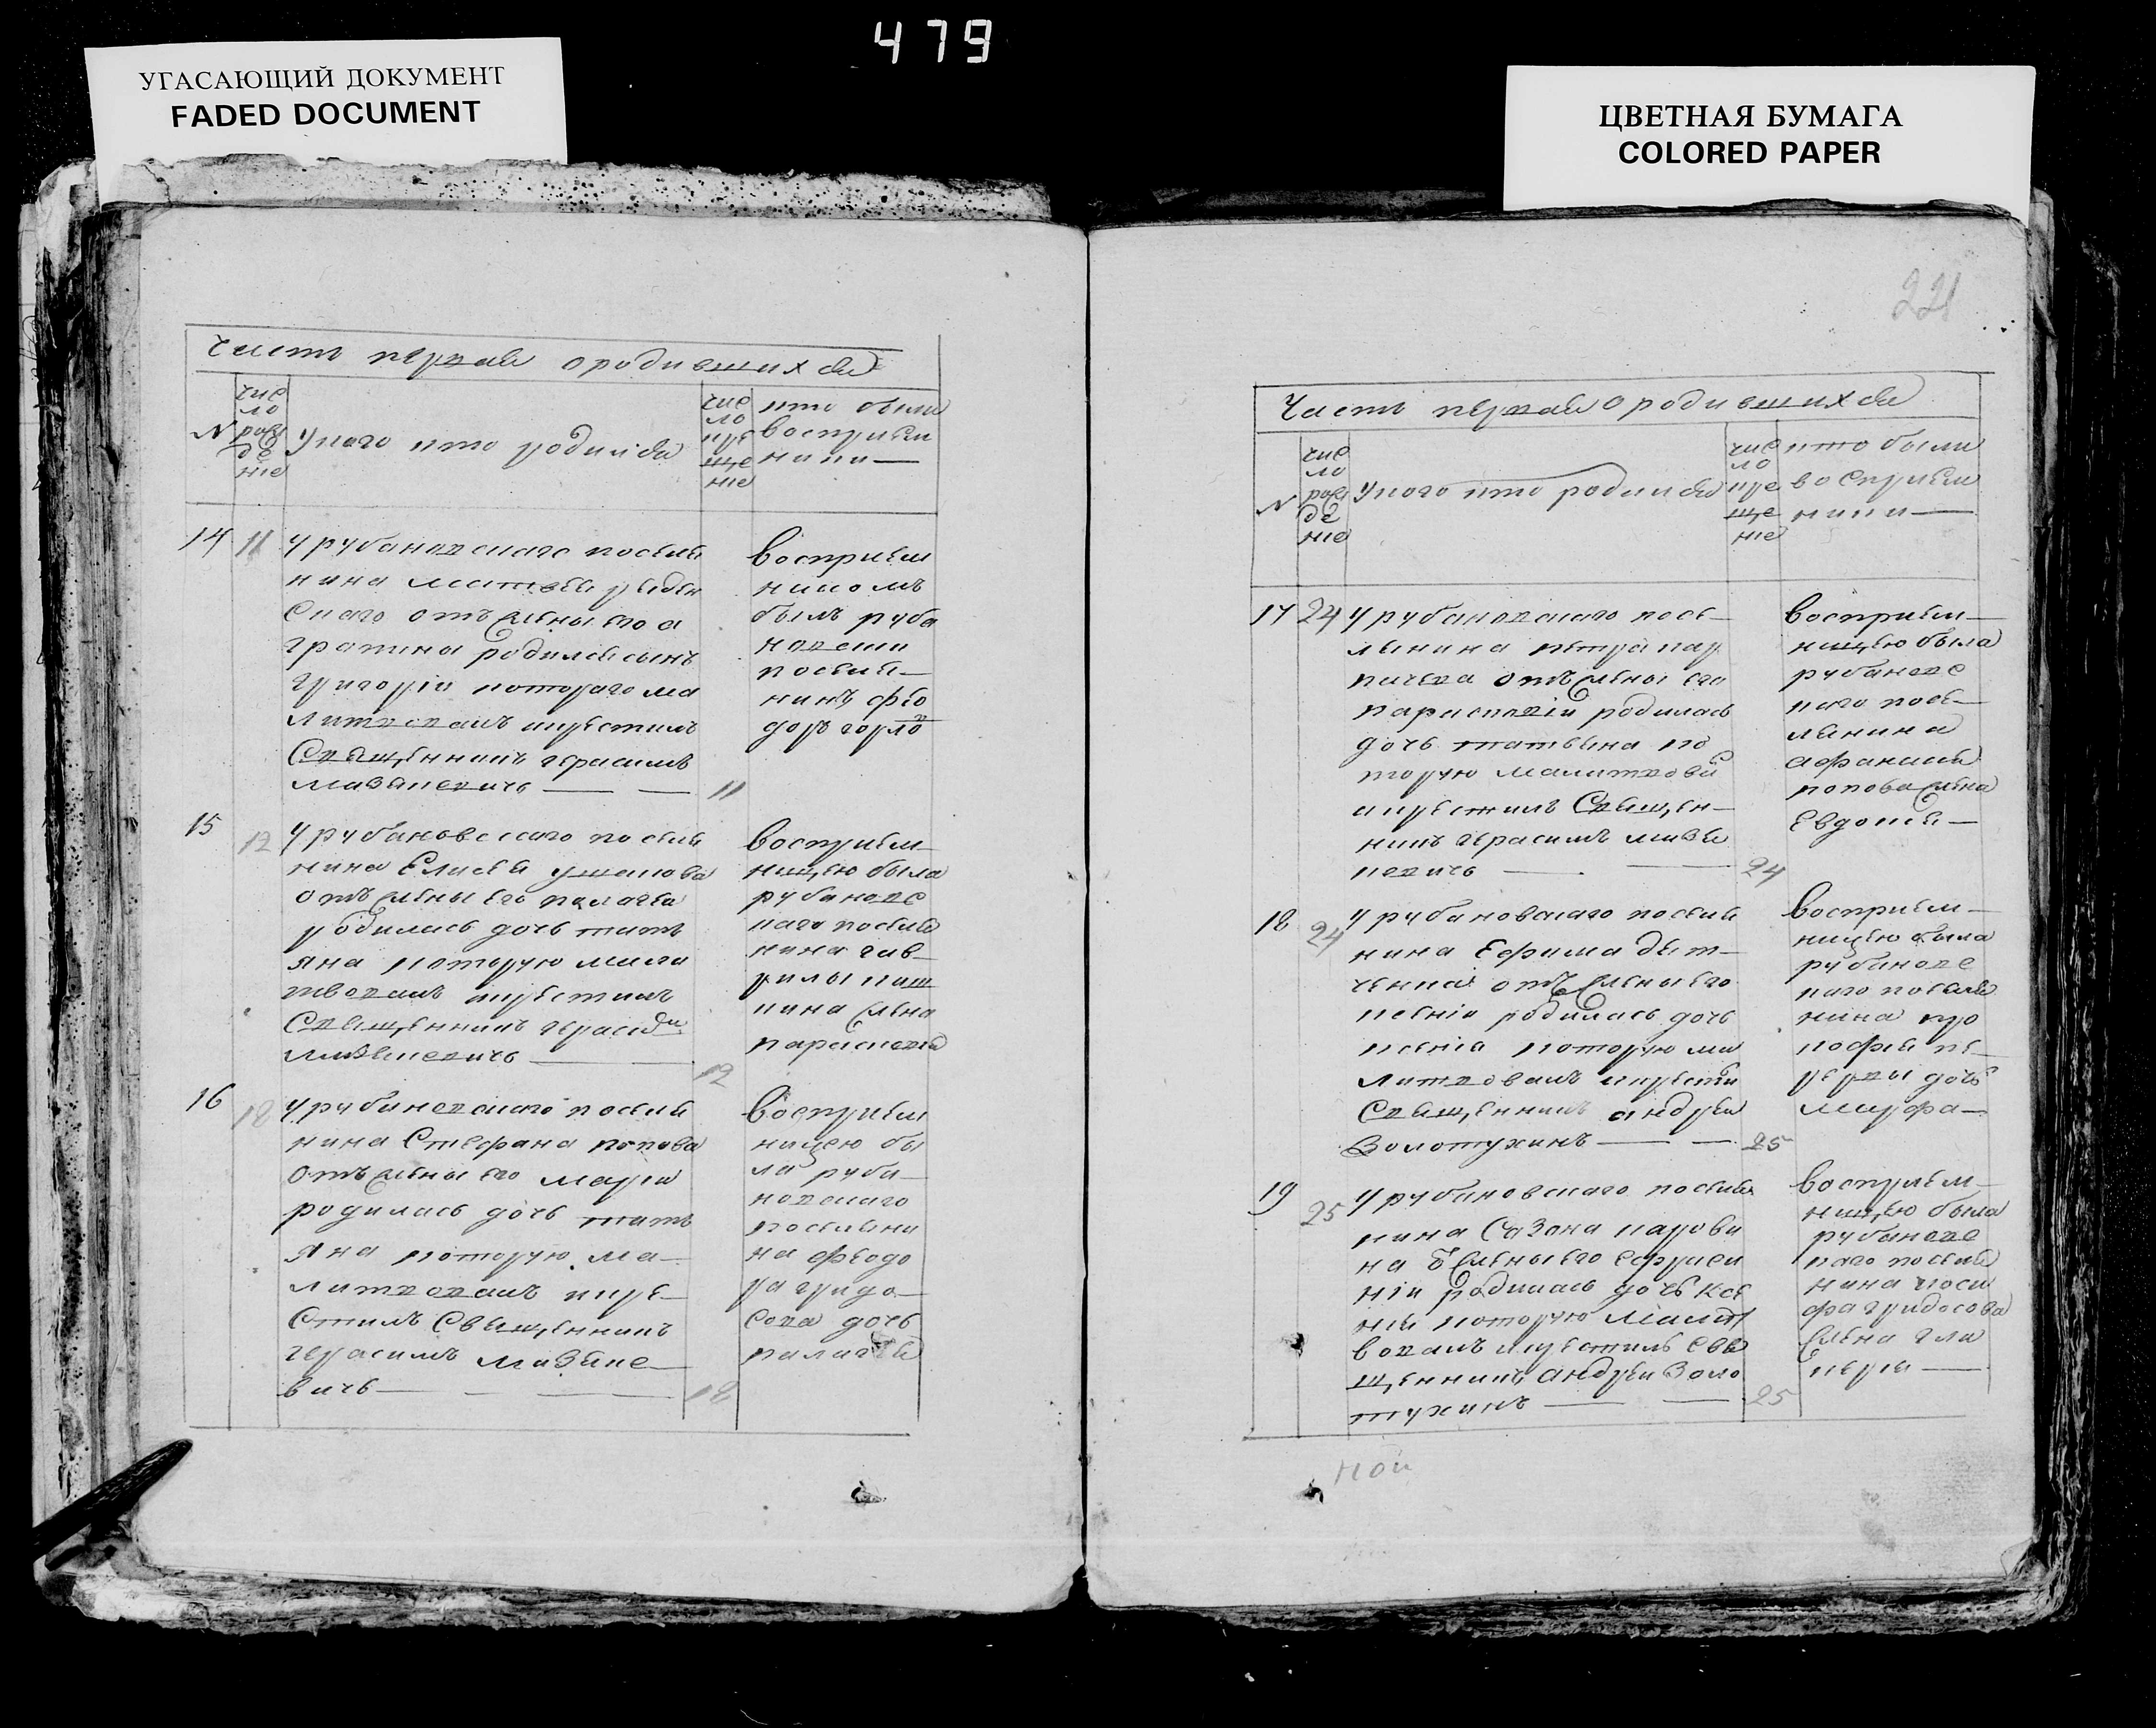 479
УГАСАЮЩИЙ ДОКУМЕНТ
FADED DOCUMENT
ЦВЕТНАЯ БУМАГА
COLORED PAPER
Часть первая о родившихся
N
чис
ло
рож
де
ние
У кого кто родился
чис
ло
кре
ще
ние
кто были
восприем
ники
14
11
У рубановского поселя
нина Матвея
скаго отъ жены его а
грапины родился сынъ
григорiи котораго мо
литвовалъ икрестилъ
Священникъ герасимъ
11
восприем
никомъ
былъ руба
новски
поселя
нинъ фео
доръ горло
15
12
У рубановскаго поселя
нина Елисея
отъ жены его пелагеи
родилась дочь тать
яна которую моли
твовалъ икрестилъ
Священникъ герасим
12
восприем
ницею была
рубановс
каго поселя
нина гав
рилы
жена
параскева
16
18
У рубановскаго поселя
нина Стефана попова
отъ жены его марiи
родилась дочь тать
яна которую мо
литвовалъ икре
стилъ Священникъ
герасимъ
вичь
18
восприем
ницею бы
ла руба
новскаго
поселяни
на феодо
ра гридо
сова дочь
палагея
221
Часть первая о родившихся
N
чис
ло
рож
де
ние
У кого кто родился
чис
ло
кре
ще
ние
кто были
восприем
ники
17
24
У рубановскаго посе
лянина петра кар
отъ жены его
параскевiи родилась
дочь татьяна ко
торую молитвова
икрестилъ Священ
никъ герасимъ
24
восприем
ницею была
рубановс
каго посе
лянина
афанасия
попова жена
Евдокея
18
24
У рубановскаго поселя
нина Ефима
отъ жены его
ксенiи родилась дочь
ксенiя которую мо
литвовалъ икрести
Священникъ андреи
Золотухинъ
25
восприем
ницею была
рубановс
каго поселя
нина про
кофия
дочь
марфа
19
25
У рубановскаго поселя
нина Сазона
на жены его ефроси
нiи родилась дочь ксе
ния которую молит
вовалъ икрестилъ свя
щенникъ андреи Золо
тухинъ
25
восприем
ницею была
рубановс
каго поселя
нина иоси
фа гридосова
жена гли
керия